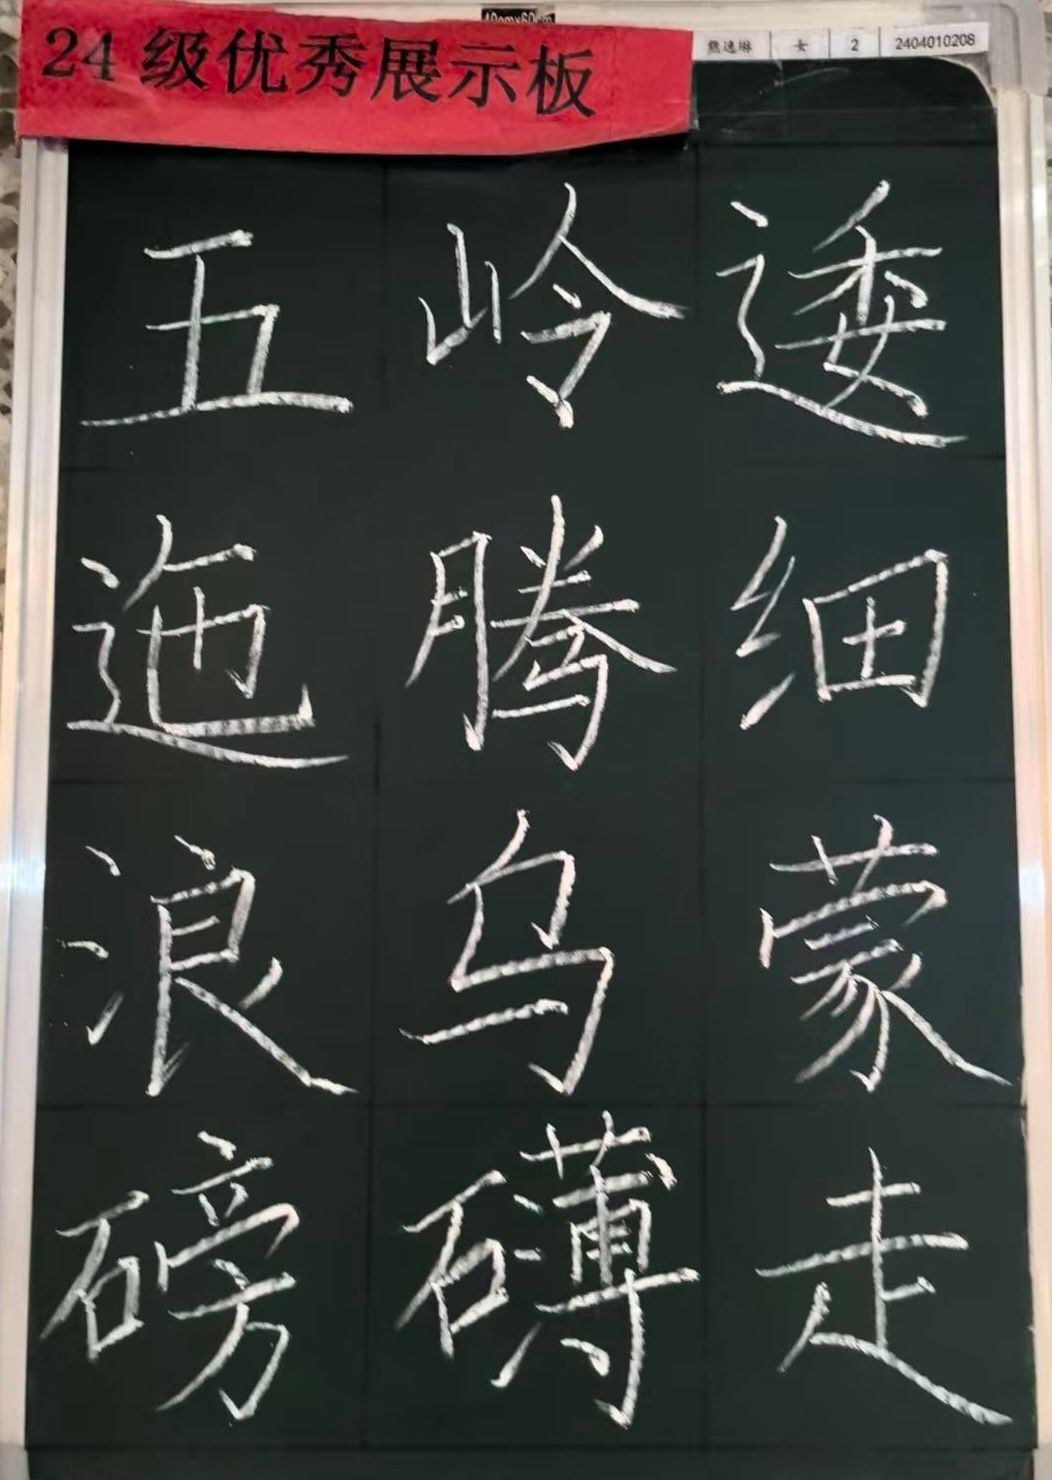 40cmx60cm
24级优秀展示板
熊逸琳 女 2 2404010208
五岭逶
迤腾细
浪乌蒙
磅礴走